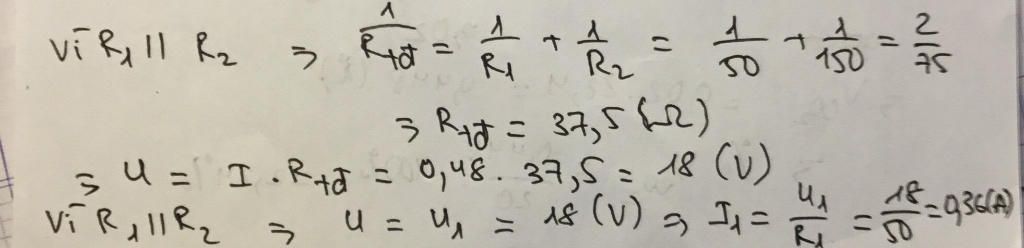 Vì R₁ // R₂ ⇒ 1/Rtđ = 1/R₁ + 1/R₂ = 1/50 + 1/150 = 2/75
⇒ Rtđ = 37,5 (Ω)
⇒ U = I . Rtđ = 0,48 . 37,5 = 18 (V)
Vì R₁ // R₂ ⇒ U = U₁ = 18 (V) ⇒ I₁ = U₁/R₁ = 18/50 = 0,36 (A)